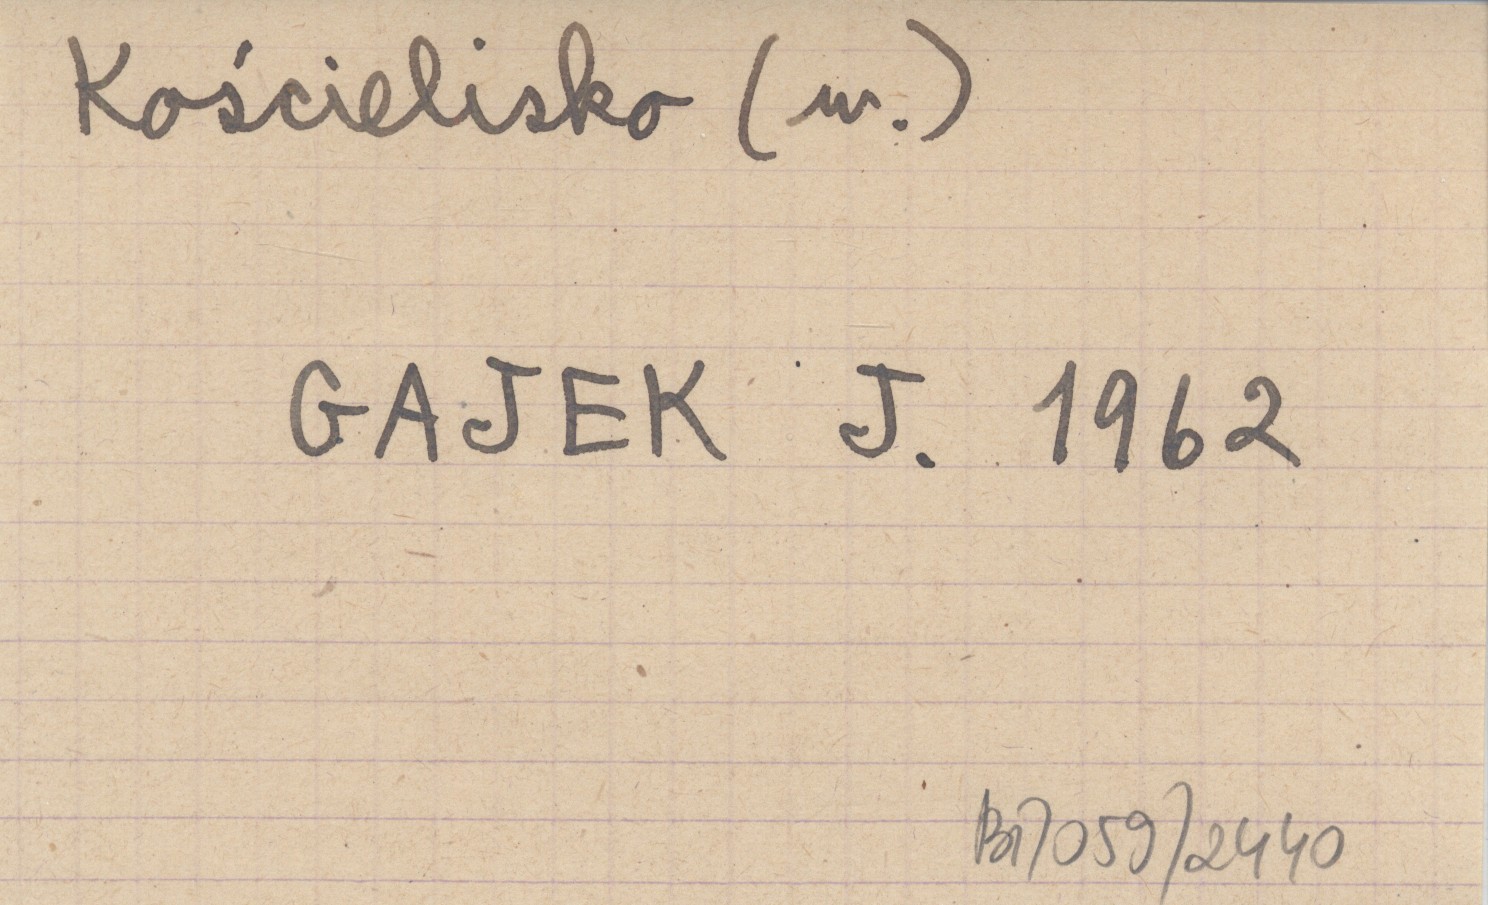 Kościelisko (w.)
GAJEK J. 1962
B1/059/2440